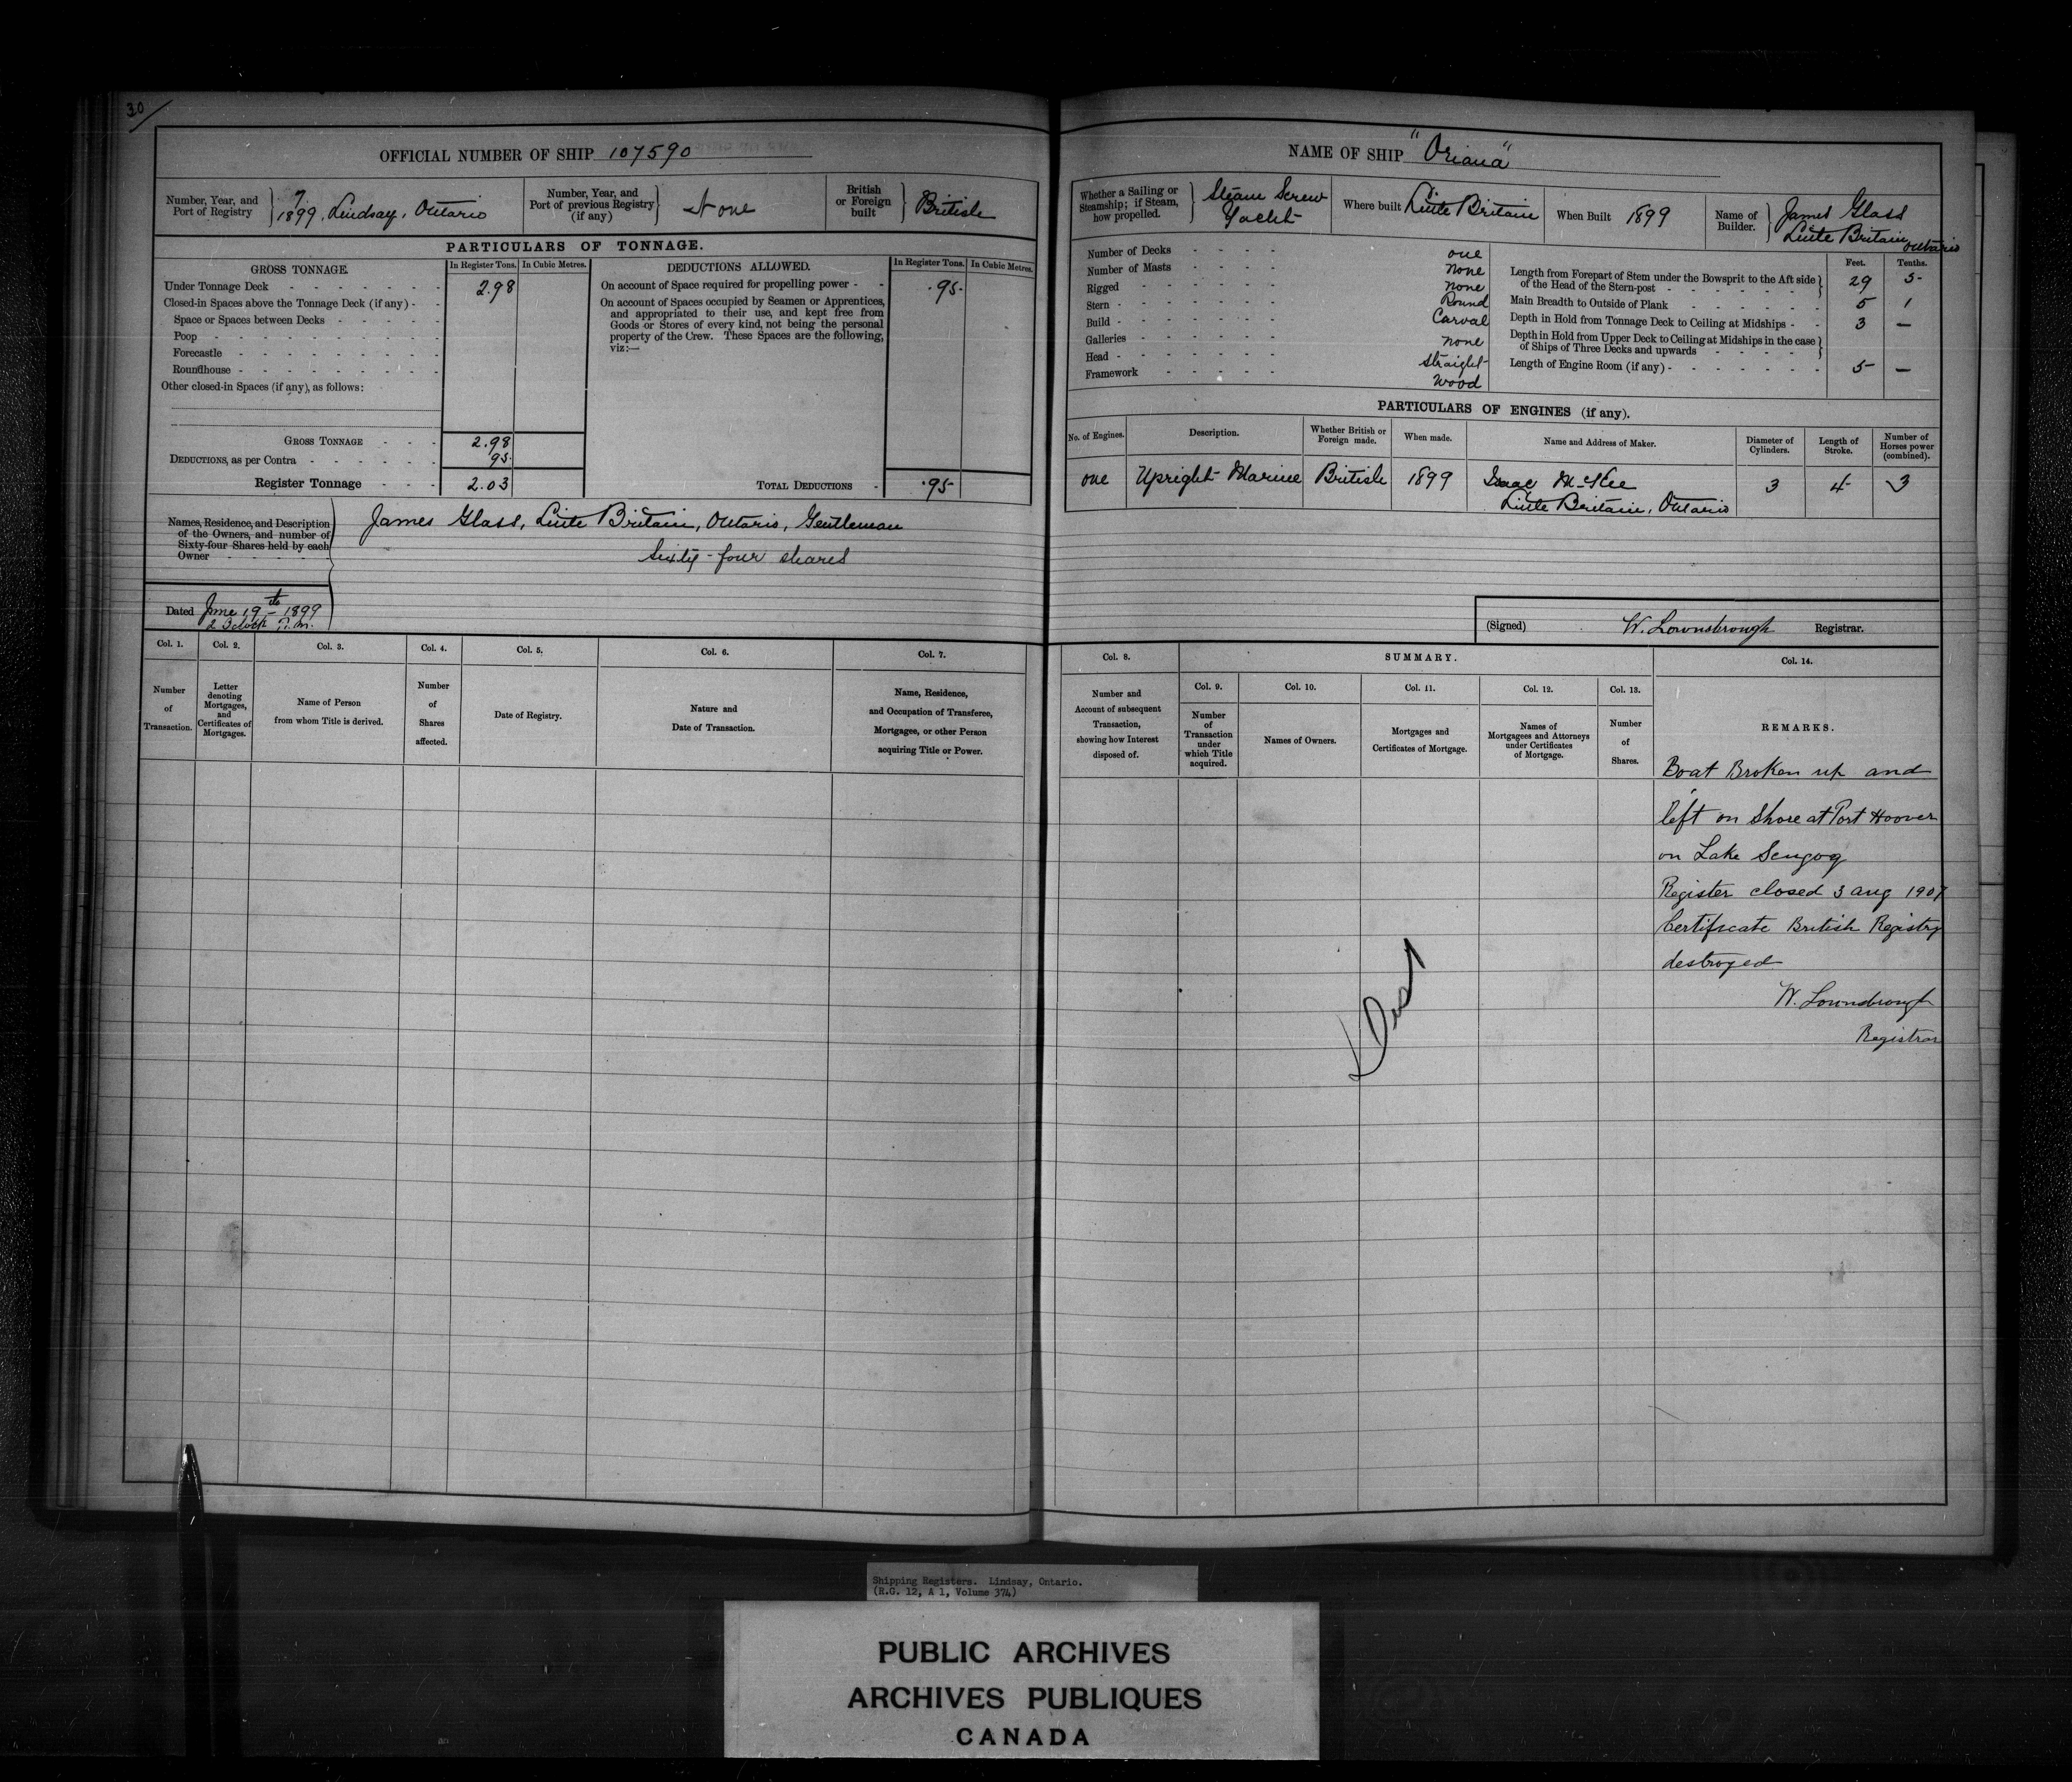 30
OFFICIAL NUMBER OF SHIP 107590
Number, Year, and Port of Registry } 7 1899, Lindsay, Ontario
Number, Year, and Port of previous Registry (if any) } None
British or Foreign built } British
PARTICULARS OF TONNAGE.
GROSS TONNAGE. In Register Tons. In Cubic Metres.
Under Tonnage Deck - 2.98
Closed-in Spaces above the Tonnage Deck (if any) -
Space or Spaces between Decks
Poop
Forecastle
Roundhouse
Other closed-in Spaces (if any), as follows:
GROSS TONNAGE 2.98
DEDUCTIONS, as per Contra .95
Register Tonnage 2.03
DEDUCTIONS ALLOWED. In Register Tons. In Cubic Metres.
On account of Space required for propelling power - .95
On account of Spaces occupied by Seamen or Apprentices,
and appropriated to their use, and kept free from
Goods or Stores of every kind, not being the personal
property of the Crew. These Spaces are the following,
viz:—
TOTAL DEDUCTIONS - .95
Names, Residence, and Description
of the Owners, and number of
Sixty-four Shares held by each
Owner
James Glass, Little Britain, Ontario, Gentleman
Sixty-four shares
Dated June 19th 1899
2 O'clock P.M.
Col. 1. Number of Transaction.
Col. 2. Letter denoting Mortgages, and Certificates of Mortgages.
Col. 3. Name of Person from whom Title is derived.
Col. 4. Number of Shares affected.
Col. 5. Date of Registry.
Col. 6. Nature and Date of Transaction.
Col. 7. Name, Residence, and Occupation of Transferee, Mortgagee, or other Person acquiring Title or Power.
NAME OF SHIP "Oriana"
Whether a Sailing or Steamship; if Steam, how propelled. } Steam Screw Yacht
Where built Little Britain
When Built 1899
Name of Builder. } James Glass Little Britain Ontario
Number of Decks one
Number of Masts none
Rigged none
Stern Round
Build Carval
Galleries none
Head straight
Framework Wood
Feet. Tenths.
Length from Forepart of Stem under the Bowsprit to the Aft side
of the Head of the Stern-post 29 5
Main Breadth to Outside of Plank 5 1
Depth in Hold from Tonnage Deck to Ceiling at Midships 3 —
Depth in Hold from Upper Deck to Ceiling at Midships in the case
of Ships of Three Decks and upwards
Length of Engine Room (if any) 5 —
PARTICULARS OF ENGINES (if any).
No. of Engines. Description. Whether British or Foreign made. When made. Name and Address of Maker. Diameter of Cylinders. Length of Stroke. Number of Horses power (combined).
one Upright Marine British 1899 Isaac McKee 3 4 3
Little Britain, Ontario
(Signed) W. Lownsbrough Registrar.
Col. 8. Number and Account of subsequent Transaction, showing how Interest disposed of.
SUMMARY.
Col. 9. Number of Transaction under which Title acquired.
Col. 10. Names of Owners.
Col. 11. Mortgages and Certificates of Mortgage.
Col. 12. Names of Mortgagees and Attorneys under Certificates of Mortgage.
Col. 13. Number of Shares.
Col. 14. REMARKS.
Boat Broken up and
left on Shore at Port Hoover
on Lake Scugog
Register closed 3 Aug 1907
Certificate British Registry
destroyed
W. Lownsbrough
Registrar
Shipping Registers. Lindsay, Ontario.
(R.G. 12, A 1, Volume 374)
PUBLIC ARCHIVES
ARCHIVES PUBLIQUES
CANADA